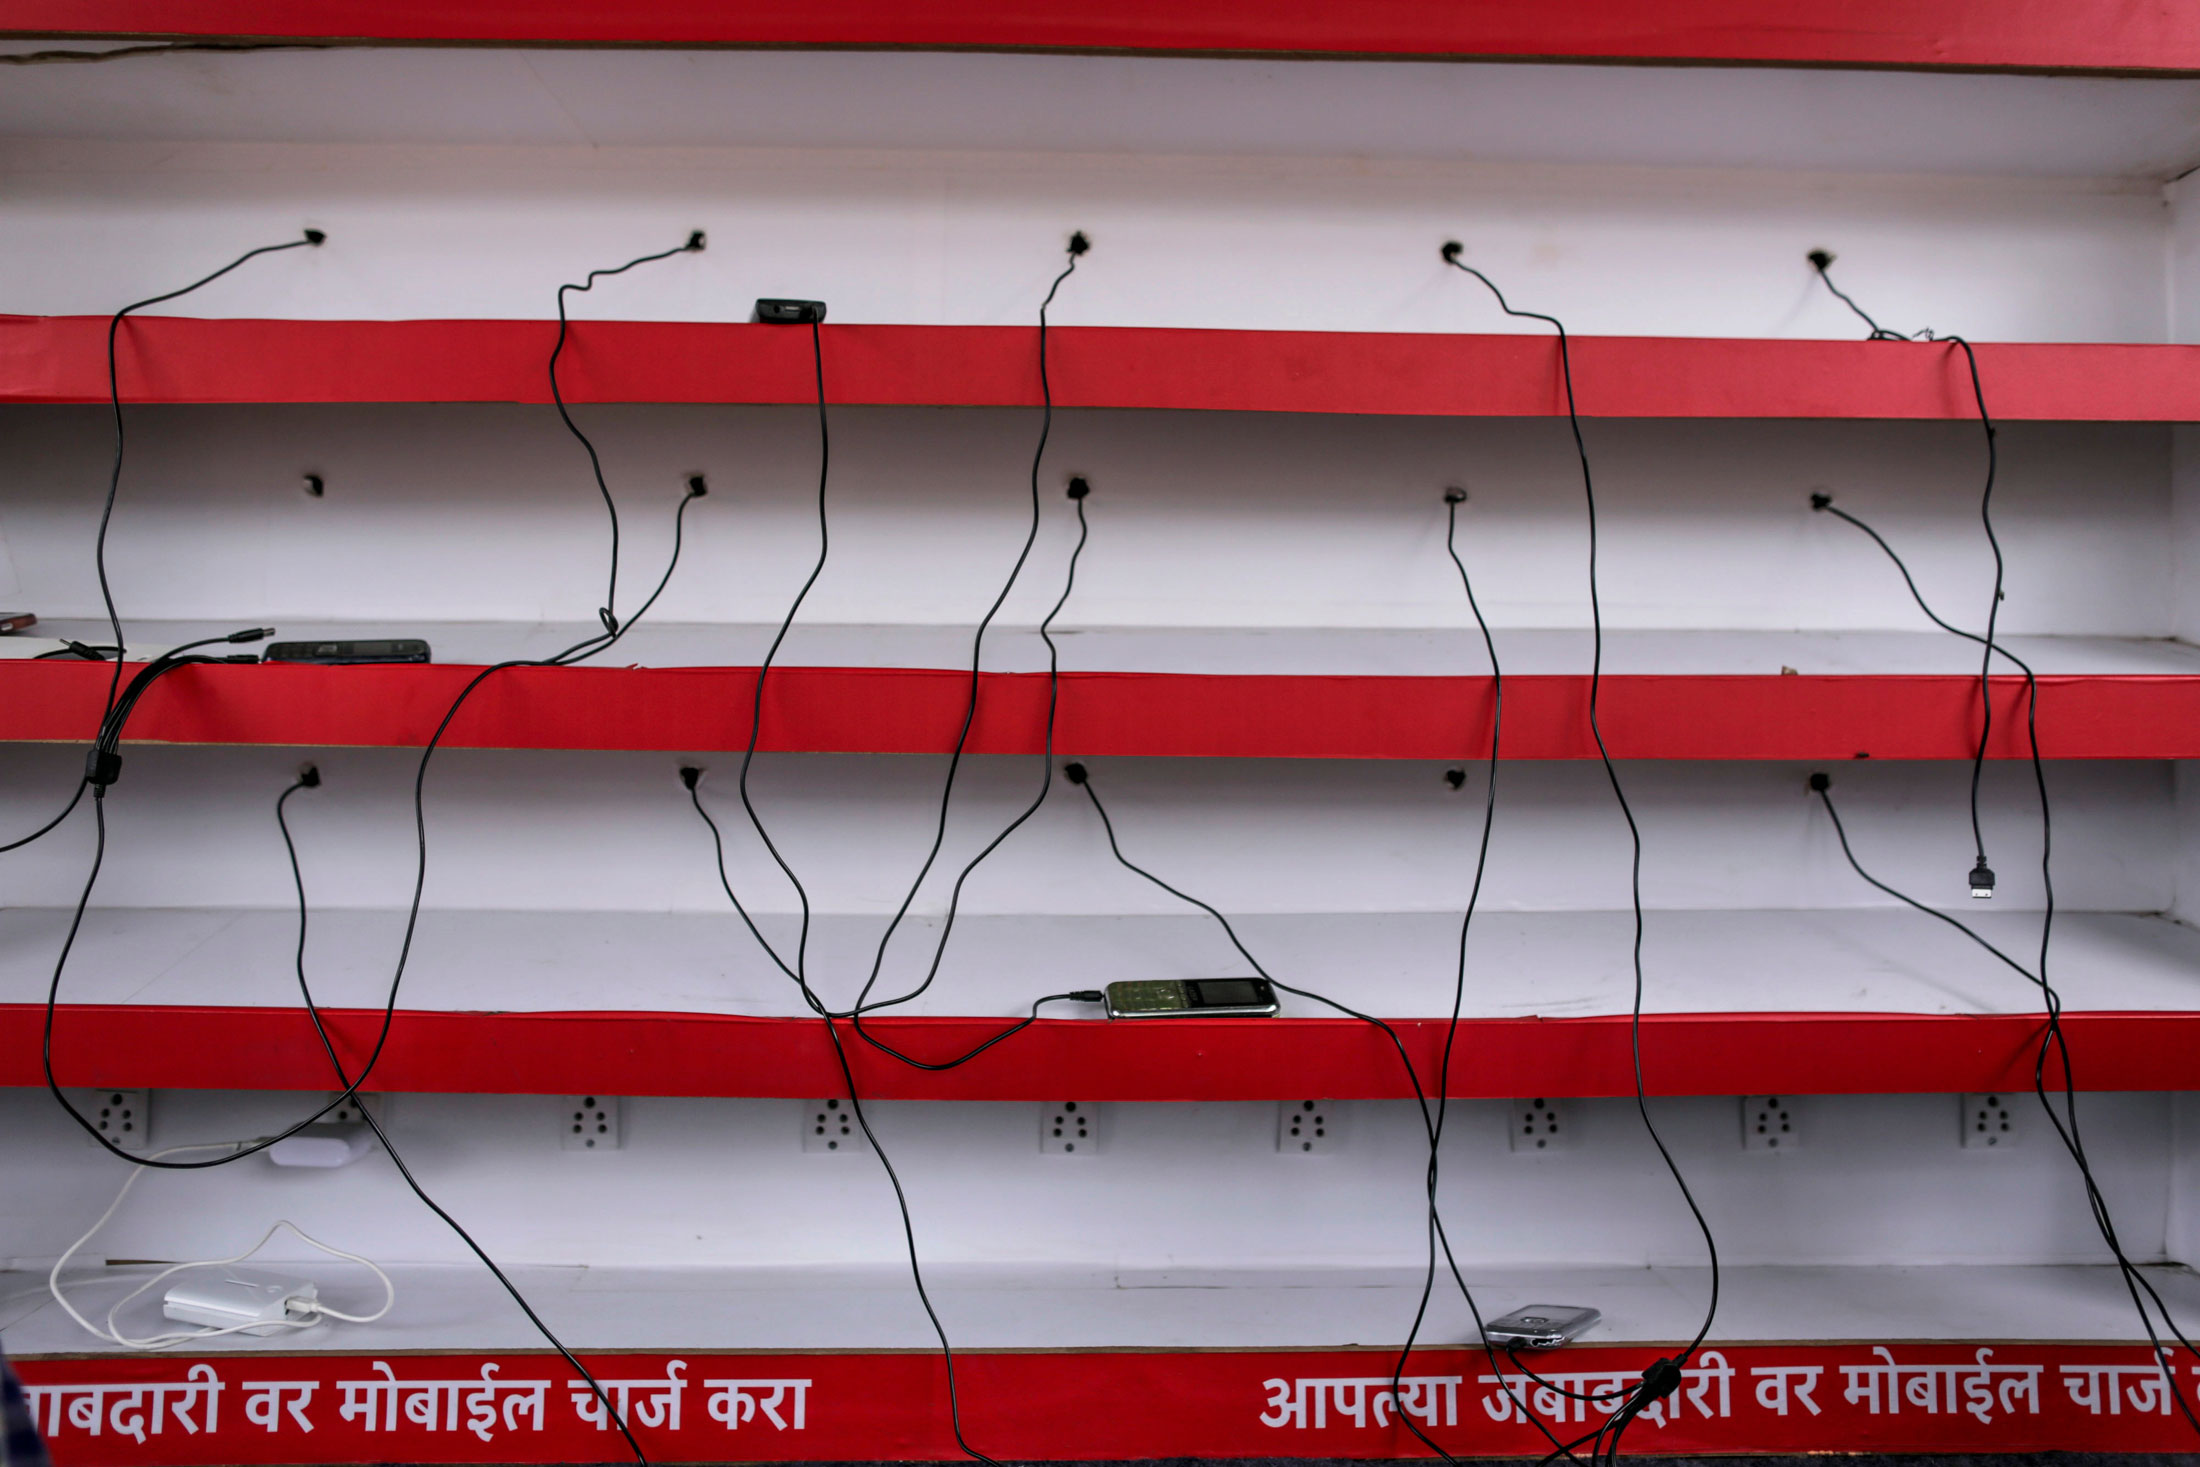 बाबदारी वर मोबाईल चार्ज करा
आपल्या जबाबदारी वर मोबाईल चार्ज